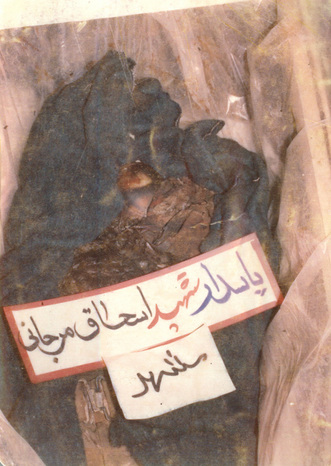 پاسدار شهید اسحاق مرجانی